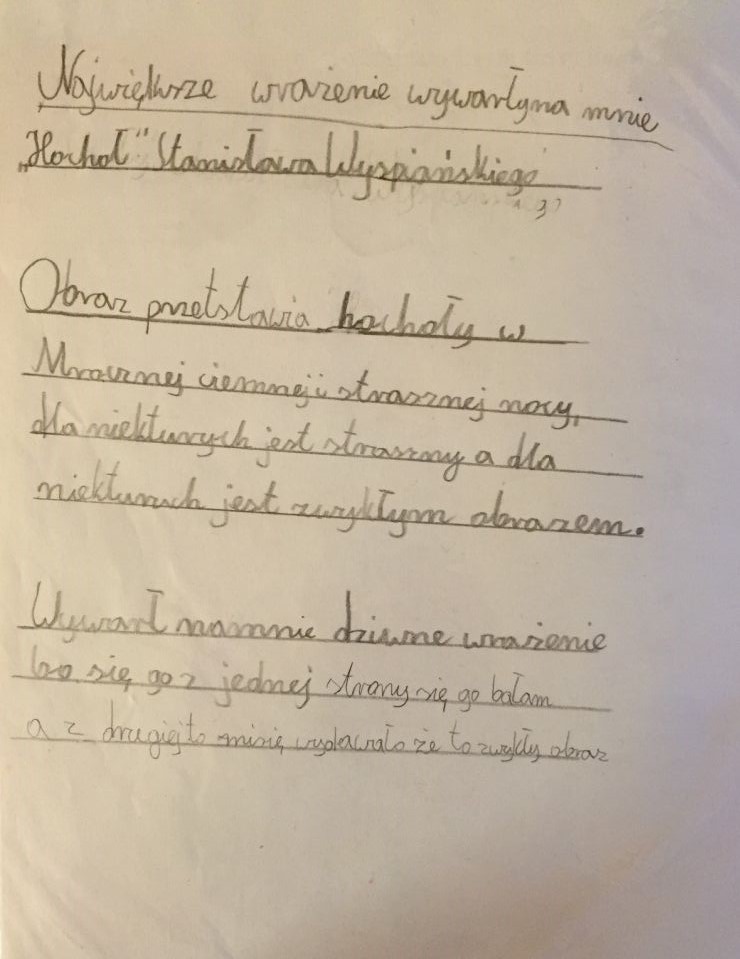 Największe wrażenie wywarłyna mnie
„Hochoł" Stanisława Wyspiańskiego
Obraz pszetstawia hochoły w
Mrocznej ciemnej i strasznej nocy,
dla niekturych jest straszny a dla
niekturych jest zwykłym obrazem.
Wywarł namnie dziwne wrażenie
bo się go z jednej strony się go bałam
a z drugiej to misię wydawało że to zwykły obraz